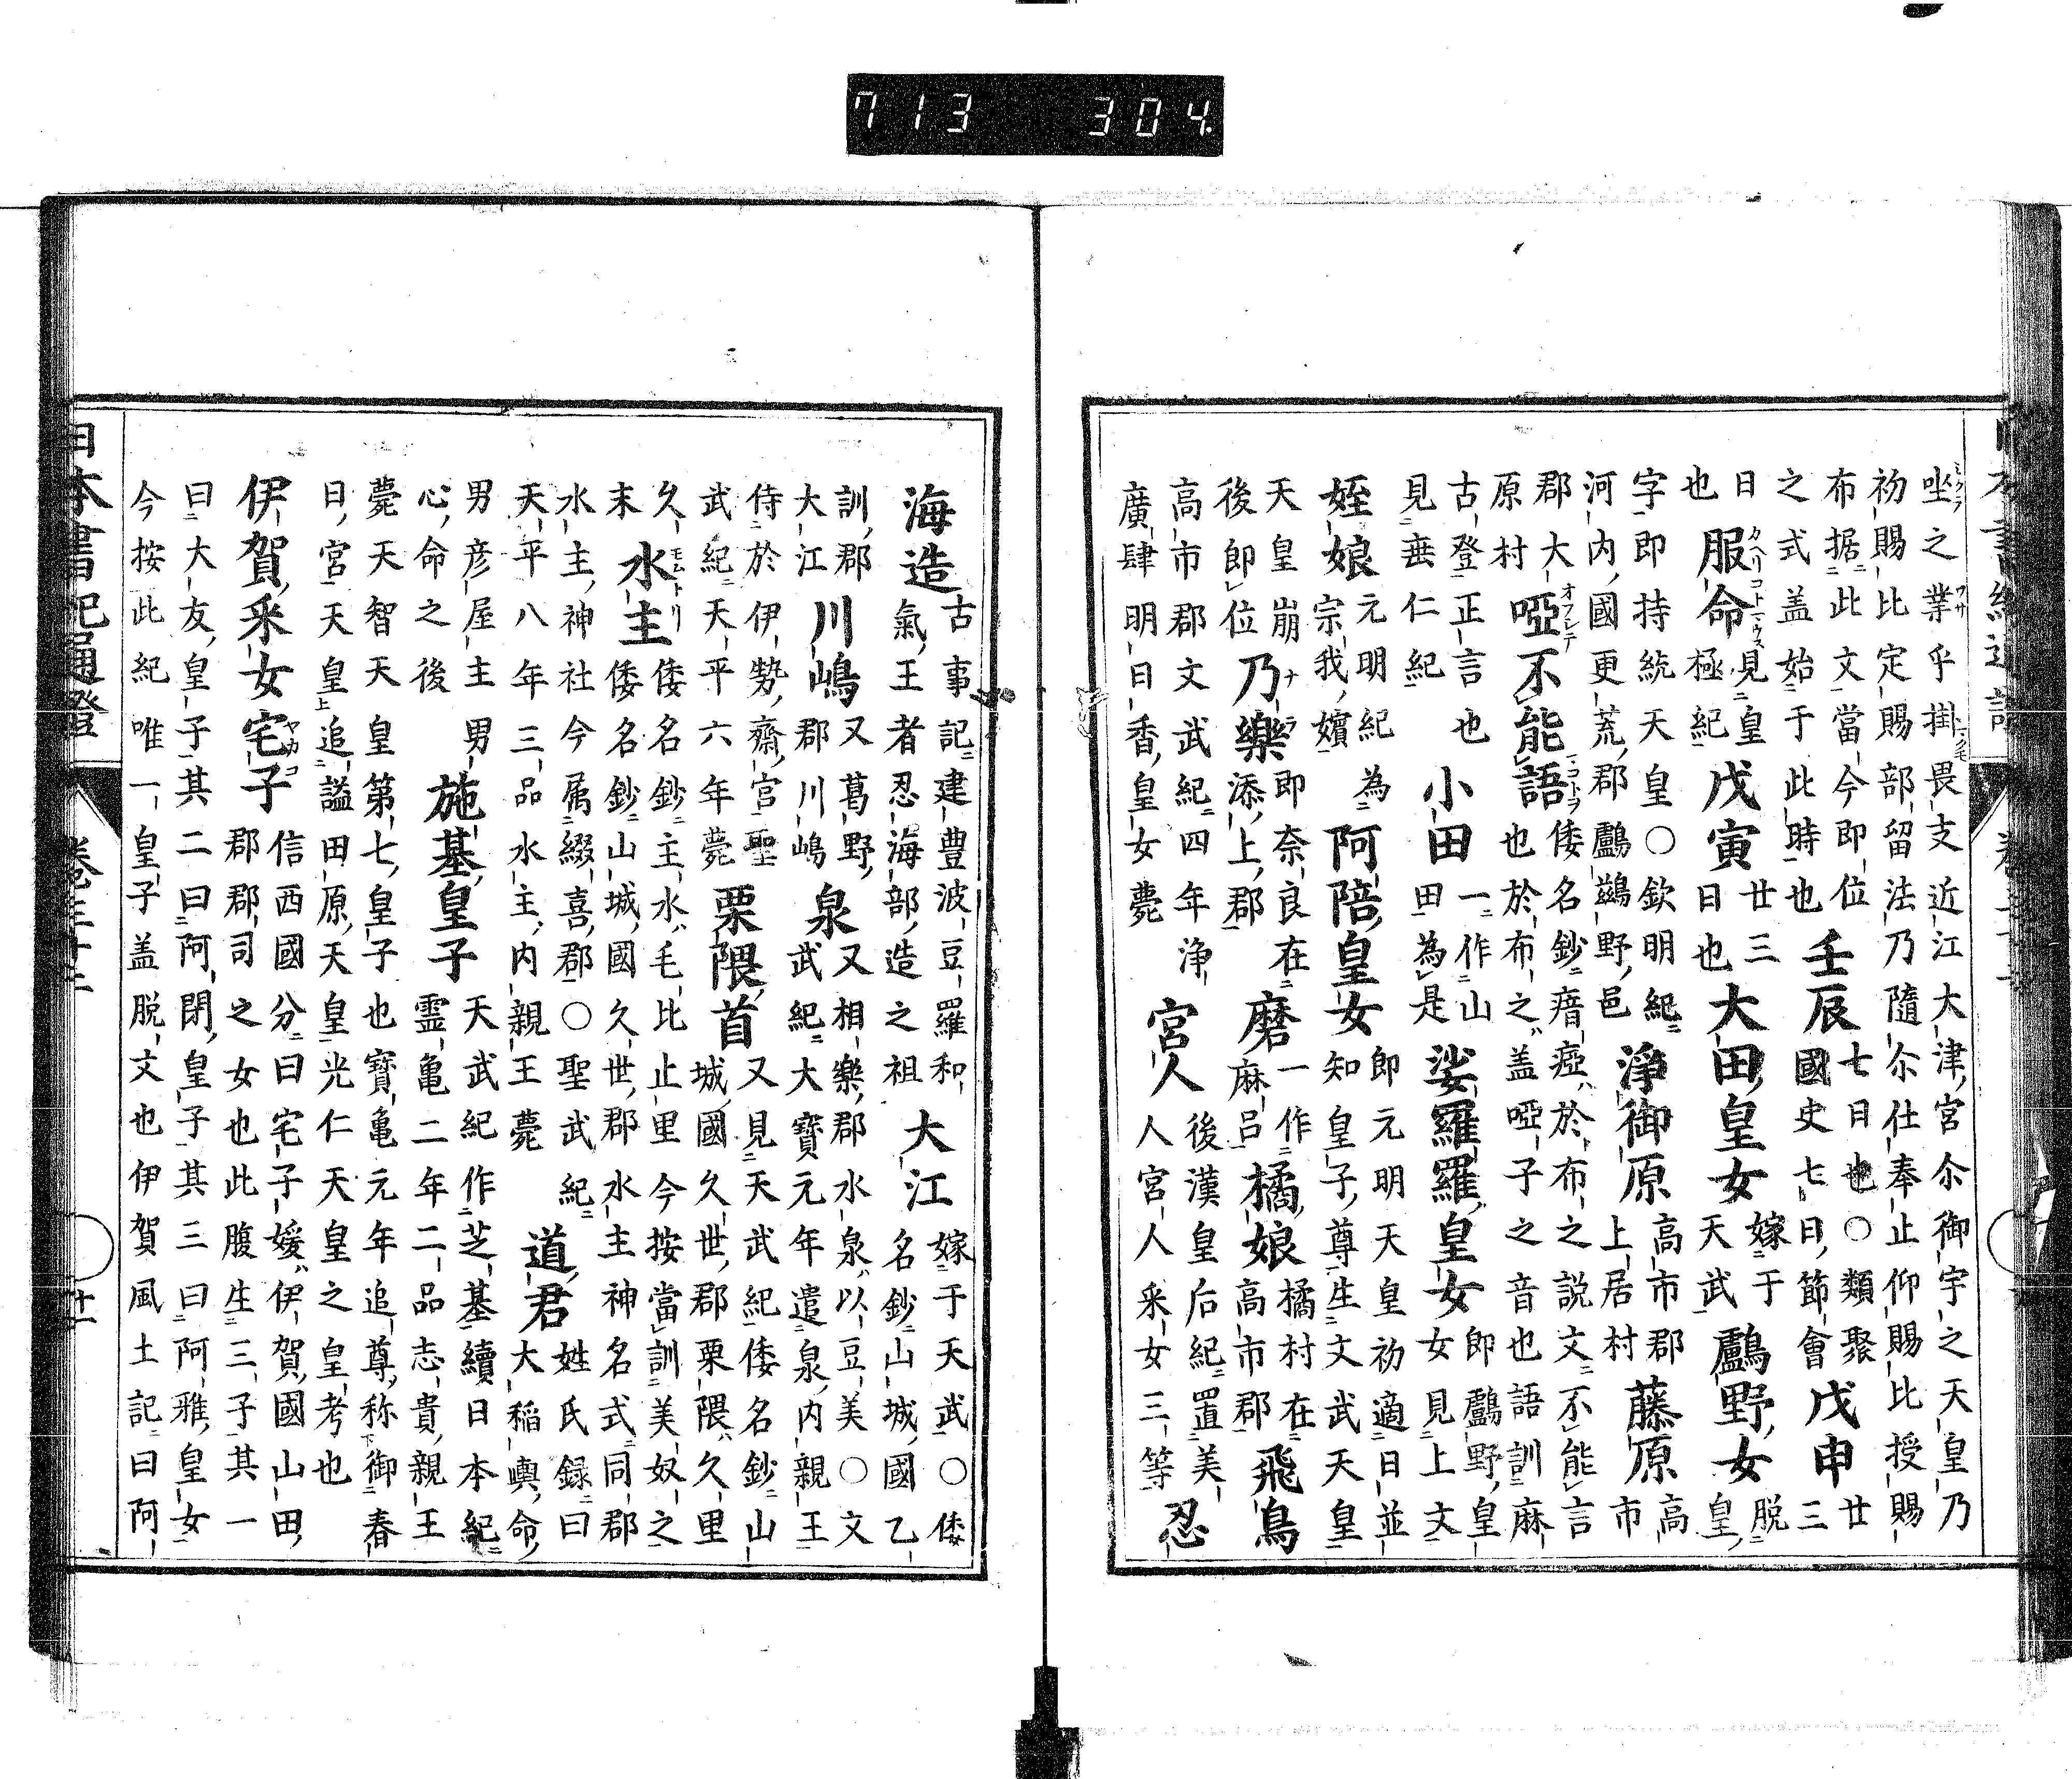 坐之業乎掛畏支近江大津宮尒御宇之天皇乃
初賜比定賜部留法乃隨尒仕奉止仰賜比授賜
布据此文當今即位
之式盖始于此時也
壬辰
七日也○類聚
國史七日節會
戊申
廿
三
日
也
服命
見皇
極紀
戊寅
廿三
日也
大田皇女
嫁于
天武
鸕野女
脱
皇
字即持統天皇○欽明紀
河内國更荒郡鸕鷀野邑
淨御原
高市郡
上居村
藤原
高
市
郡大
原村
啞不能語
倭名鈔瘖瘂於布之説文不能言
也於布之盖啞子之音也語訓麻
古登正言也
見垂仁紀
小田
一作山
田為是
娑羅羅皇女
即鸕野皇
女見上文
姪娘
元明紀為
宗我嬪
阿陪皇女
即元明天皇初適日並
知皇子尊生文武天皇
天皇崩
後即位
乃樂
即奈良在
添上郡
磨
一作
麻呂
橘娘
橘村在
高市郡
飛鳥
高市郡文武紀四年淨
廣肆明日香皇女薨
宮人
後漢皇后紀置美
人宮人采女三等
忍
海造
古事記建豊波豆羅和
氣王者忍海部造之祖
大江
嫁于天武○倭
名鈔山城國乙
訓郡
大江
川嶋
又葛野
郡川嶋
泉
又相樂郡水泉以豆美○文
武紀大寶元年遣泉内親王
侍於伊勢齋宮聖
武紀天平六年薨
栗隈首
又見天武紀倭名鈔山
城國久世郡栗隈久里
久
末
水主
倭名鈔主水毛比止里今按當訓美奴之
倭名鈔山城國久世郡水主神名式同郡
水主神社今属綴喜郡○聖武紀
天平八年三品水主内親王薨
道君
姓氏録曰
大稲輿命
男彦屋主男
心命之後
施基皇子
天武紀作芝基續日本紀
霊亀二年二品志貴親王
薨天智天皇第七皇子也寶亀元年追尊称御春
日宮天皇追謚田原天皇光仁天皇之皇考也
伊賀采女宅子
信西國分曰宅子媛伊賀國山田
郡郡司之女也此腹生三子其一
曰大友皇子其二曰阿閉皇子其三曰阿雅皇女
今按此紀唯一皇子盖脱文也伊賀風土記曰阿
日本書紀通證
713 304